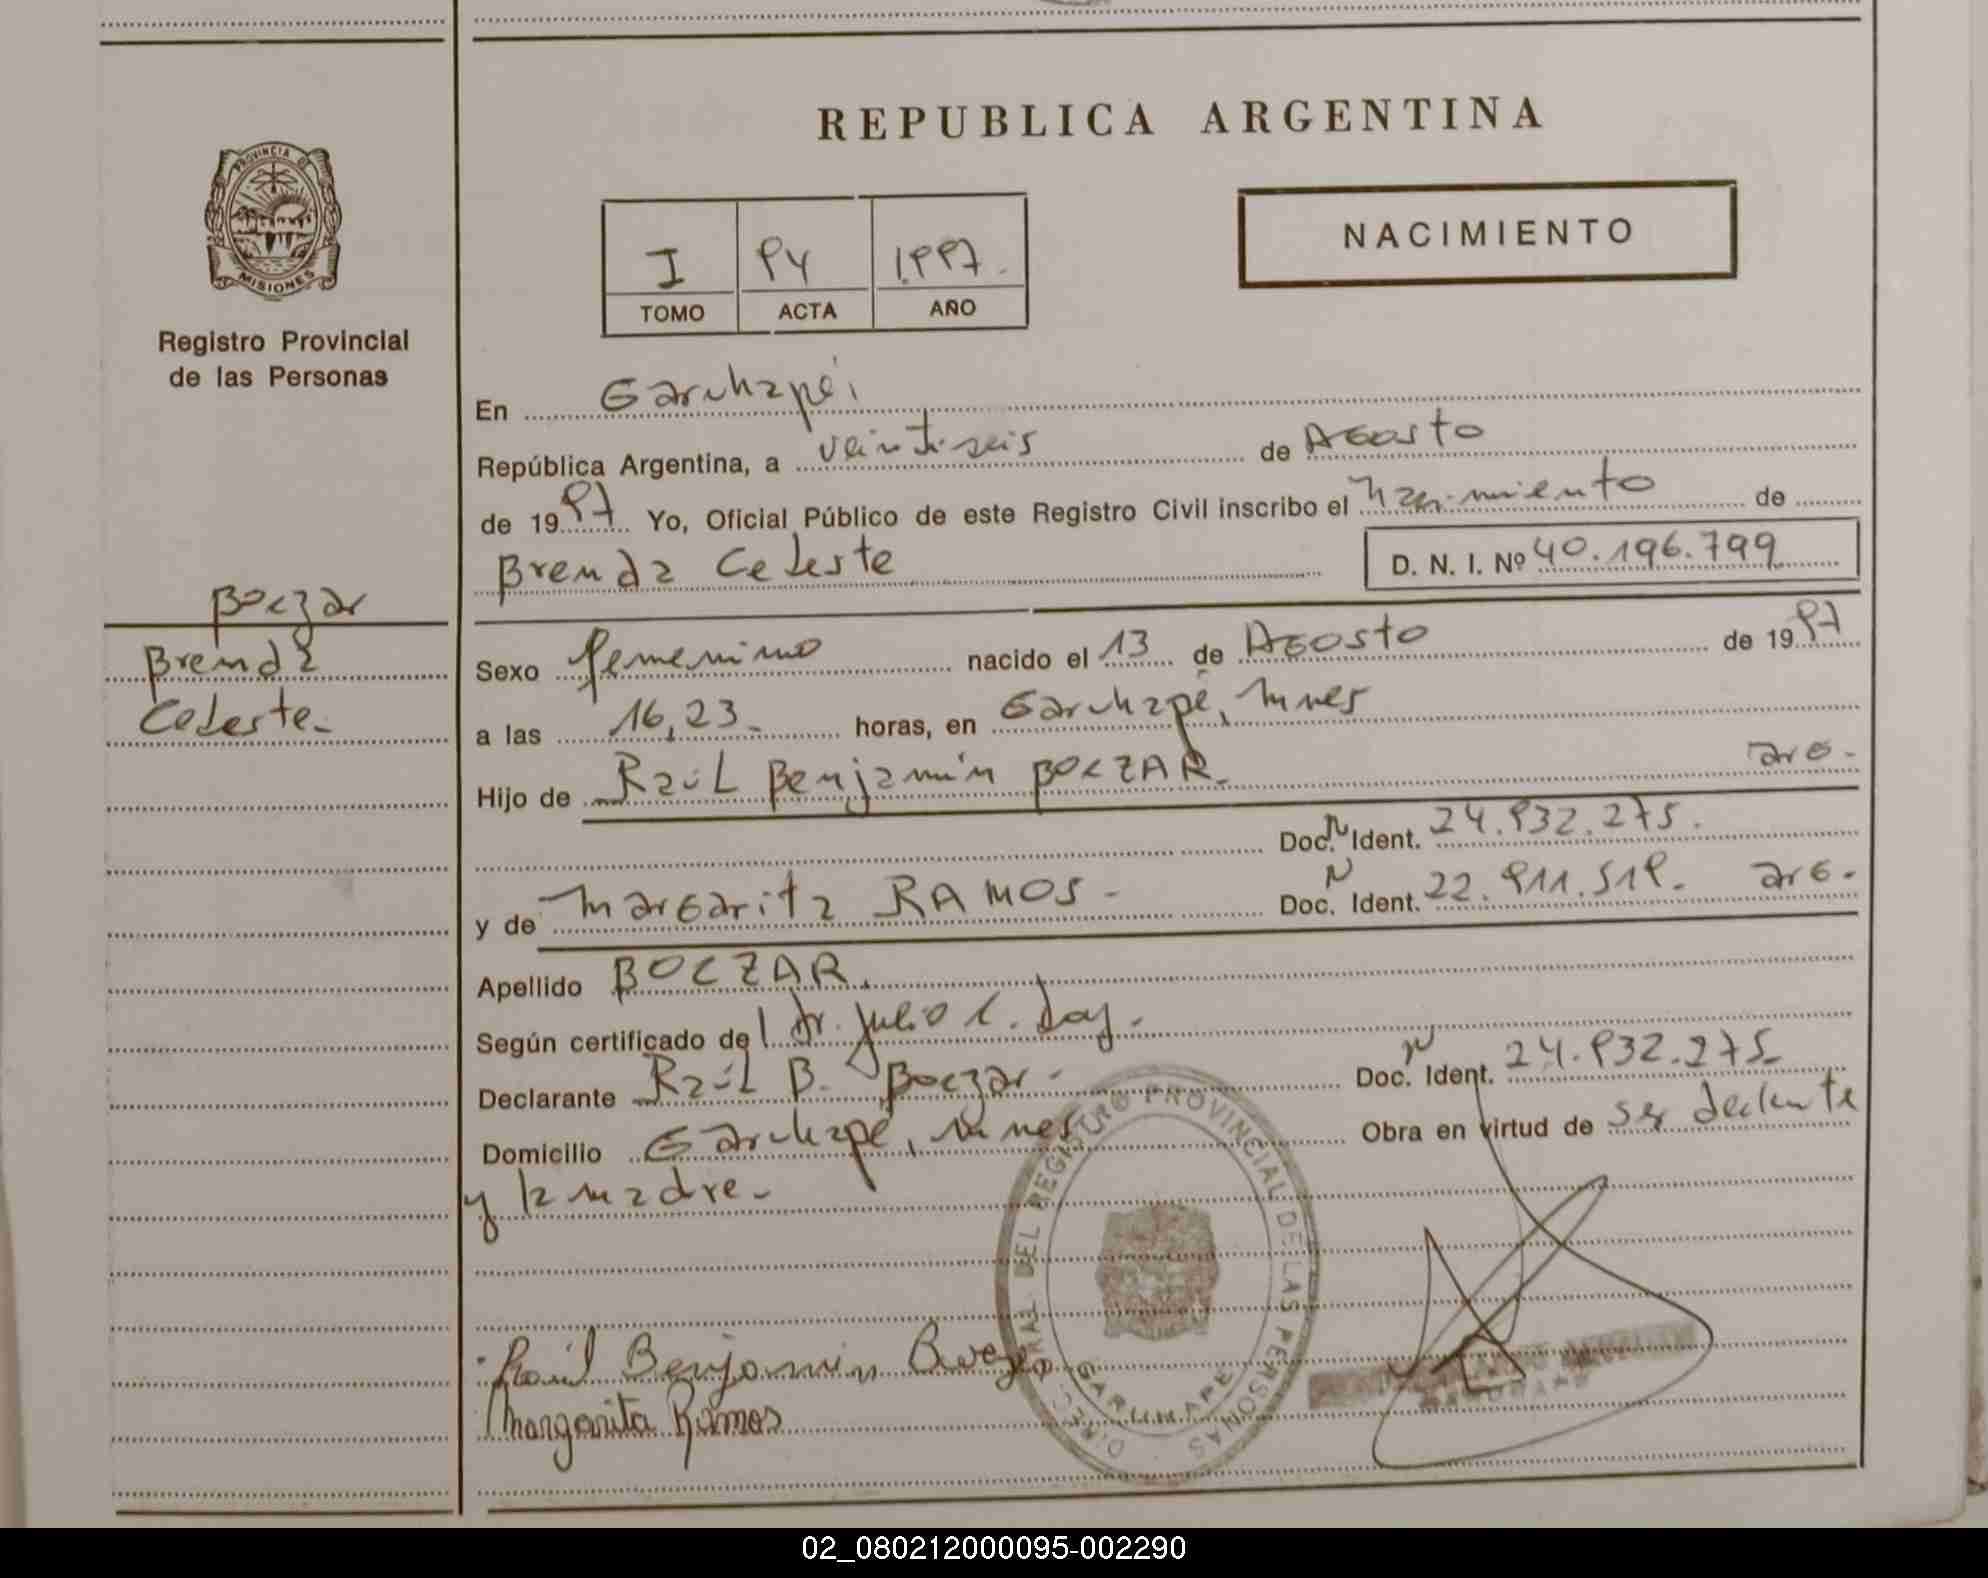 REPUBLICA ARGENTINA
PROVINCIA DE
MISIONES
Registro Provincial
de las Personas
I 94 1.997.
TOMO ACTA AÑO
NACIMIENTO
En Garuhapé,
República Argentina, a veintiseis de Agosto
de 1997 Yo, Oficial Público de este Registro Civil inscribo el Nacimiento de
Brenda Celeste D. N. I. Nº 40.196.799
Boczar
Brenda
Celeste.-
Sexo femenino nacido el 13 de Agosto de 1997
a las 16,23.- horas, en Garuhapé, Mnes
Hijo de Raúl Benjamín BOCZAR.- arg.-
Doc. N Ident. 24.932.275.
y de Margarita RAMOS.- Doc. N Ident. 22.911.519. arg.-
Apellido BOCZAR.
Según certificado del dr. Julio C.
Declarante Raúl B. Boczar.- Doc. N Ident. 24.932.275.-
Domicilio Garuhapé, Mnes Obra en virtud de ser declante
y la madre.-
DEL REGISTRO PROVINCIAL DE LAS PERSONAS
GARUHAPE
Raúl Benjamin
Margarita Ramos
02_080212000095-002290